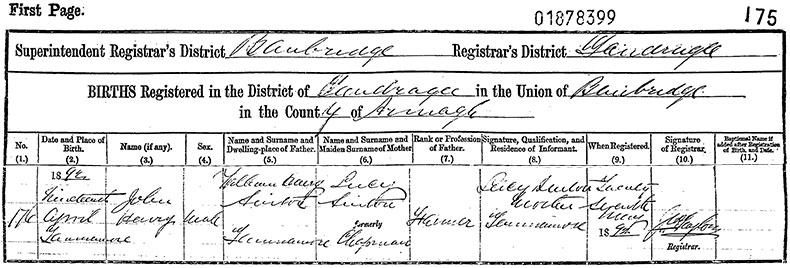 First Page.
01878399
175
Superintendent Registrar's District Banbridge Registrar's District Tandragee
BIRTHS Registered in the District of Tandragee in the Union of Banbridge
in the County of Armagh
No. Date and Place of Birth. Name (if any). Sex. Name and Surname and Dwelling-place of Father. Name and Surname and Maiden Surname of Mother Rank or Profession of Father. Signature, Qualification, and Residence of Informant. When Registered. Signature of Registrar. Baptismal Name if added after Registration of Birth, and Date.
(1.) (2.) (3.) (4.) (5.) (6.) (7.) (8.) (9.) (10.) (11.)
18
Nineteenth John William Henry Lucy Lucy Sinton Twenty
Sinton Sinton Mother Seventh
April Henry Male formerly Farmer May
Chapman 18
Registrar.